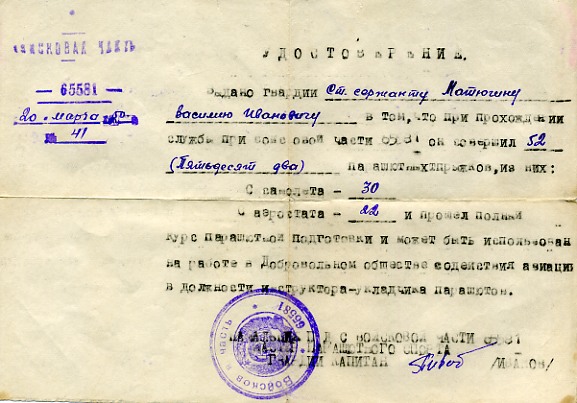 ВОЙСКОВАЯ ЧАСТЬ
— 65581 —
20 марта 50
№ 41
УДОСТОВЕРЕНИЕ.
Выдано гвардии Ст. сержанту Матюгину
Василию Ивановичу в том, что при прохождении
службы при войсковой части 65581 он совершил 52
(Пятьдесят два) парашютных прыжков, из них:
С самолета – 30
С аэростата – 22 и прошел полный
курс парашютной подготовки и может быть использован
на работе в Добровольном обществе содействия авиации
в должности инструктора-укладчика парашютов.
НАЧАЛЬНИК П.Д.С ВОЙСКОВОЙ ЧАСТИ 65581
ПАРАШЮТНОГО
ГВАРДИИ КАПИТАН /ИВАНОВ/
Войсковая часть
18990